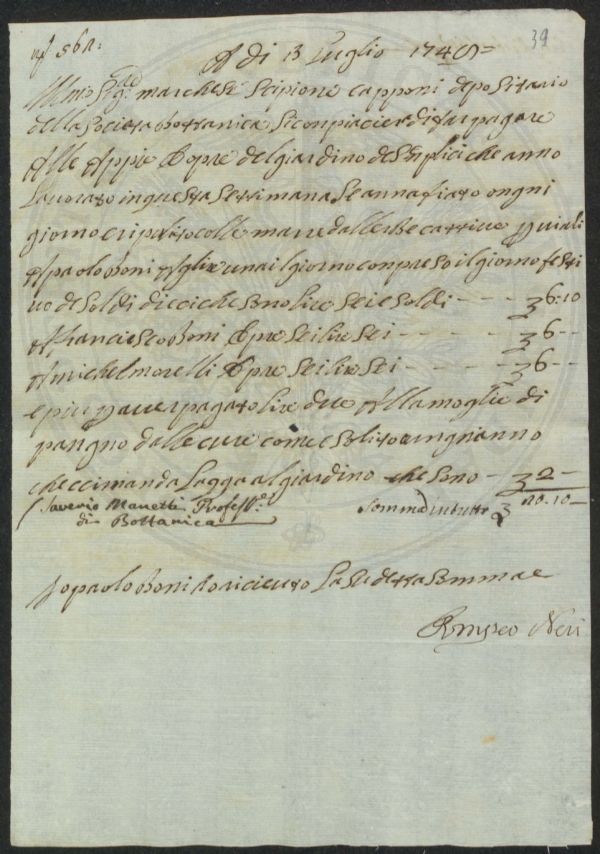 39
A di 13 Luglio 174
Illmo Sigre marchese Scipione Capponi depositario
della Societa bottanica Si conpiacierà di far pagare
Alle Appie Opre del giardino de Senplici che anno
Lavorato in questa Settimana Se annafiato ongni
giorno e ripulito colle marre dalle Erbe cattive viali
A paolo Boni Aglire una il giorno conpreso il giorno festi
vo de Soldi dieci che Sono lire Sei e Soldi - - - 6:10
A franciesco Boni Opre Sei lire Sei - - - 6 - -
A michel morelli Opre Sei lire Sei - - - 6 - -
e piu p aver pagato lire due Alla moglie di
pangno dalle cure come e Solito ongnianno
che ci manda lagga al giardino che Sono - 2 -
Saverio Manetti Profess.e Somma in tutto 20.10 -
di Bottanica
Io paolo Boni o ricieuto La Sudetta Somma e
Neri